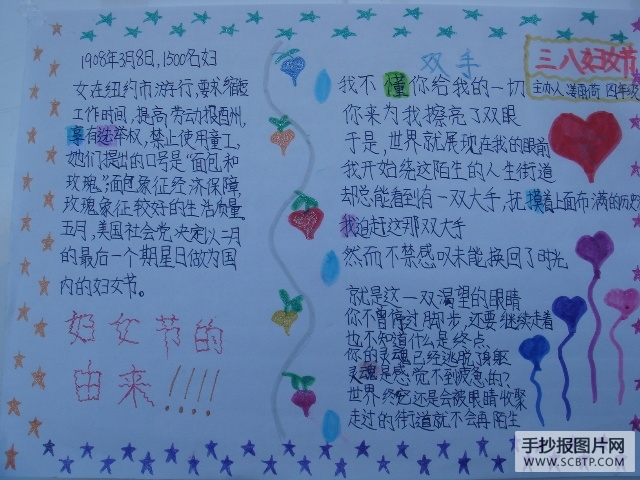 1908年3月8日,1500名妇
女在纽约市游行,要求缩短
工作时间,提高劳动报酬,
享有选举权,禁止使用童工,
她们提出的口号是“面包和
玫瑰”,面包象征经济保障
玫瑰象征较好的生活质量
五月,美国社会党决定以二月
的最后一个期星日做为国
内的妇女节。
妇女节的
由来!!!!
三八妇女节
主办人 四年级
双手
我不懂你给我的一切
你来为我擦亮了双眼
于是,世界就展现在我的眼前
我开始绕这陌生的人生街道
却总能看到有一双大手,抚摸着上面布满的历
我追赶这那双大手
然而不禁感叹未能换回了时光
就是这一双渴望的眼睛
你不曾停过脚步,还要继续走着
也不知道什么是终点
你的灵魂已经逃脱身躯
灵魂是感觉不到疲惫的?
世界终究还是会被眼睛收聚
走过的街道就不会再陌生
手抄报图片网
WWW.SCBTP.COM